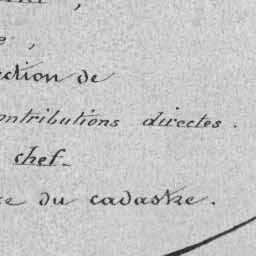 ction de
ontributions directes.
chef
du cadastre.